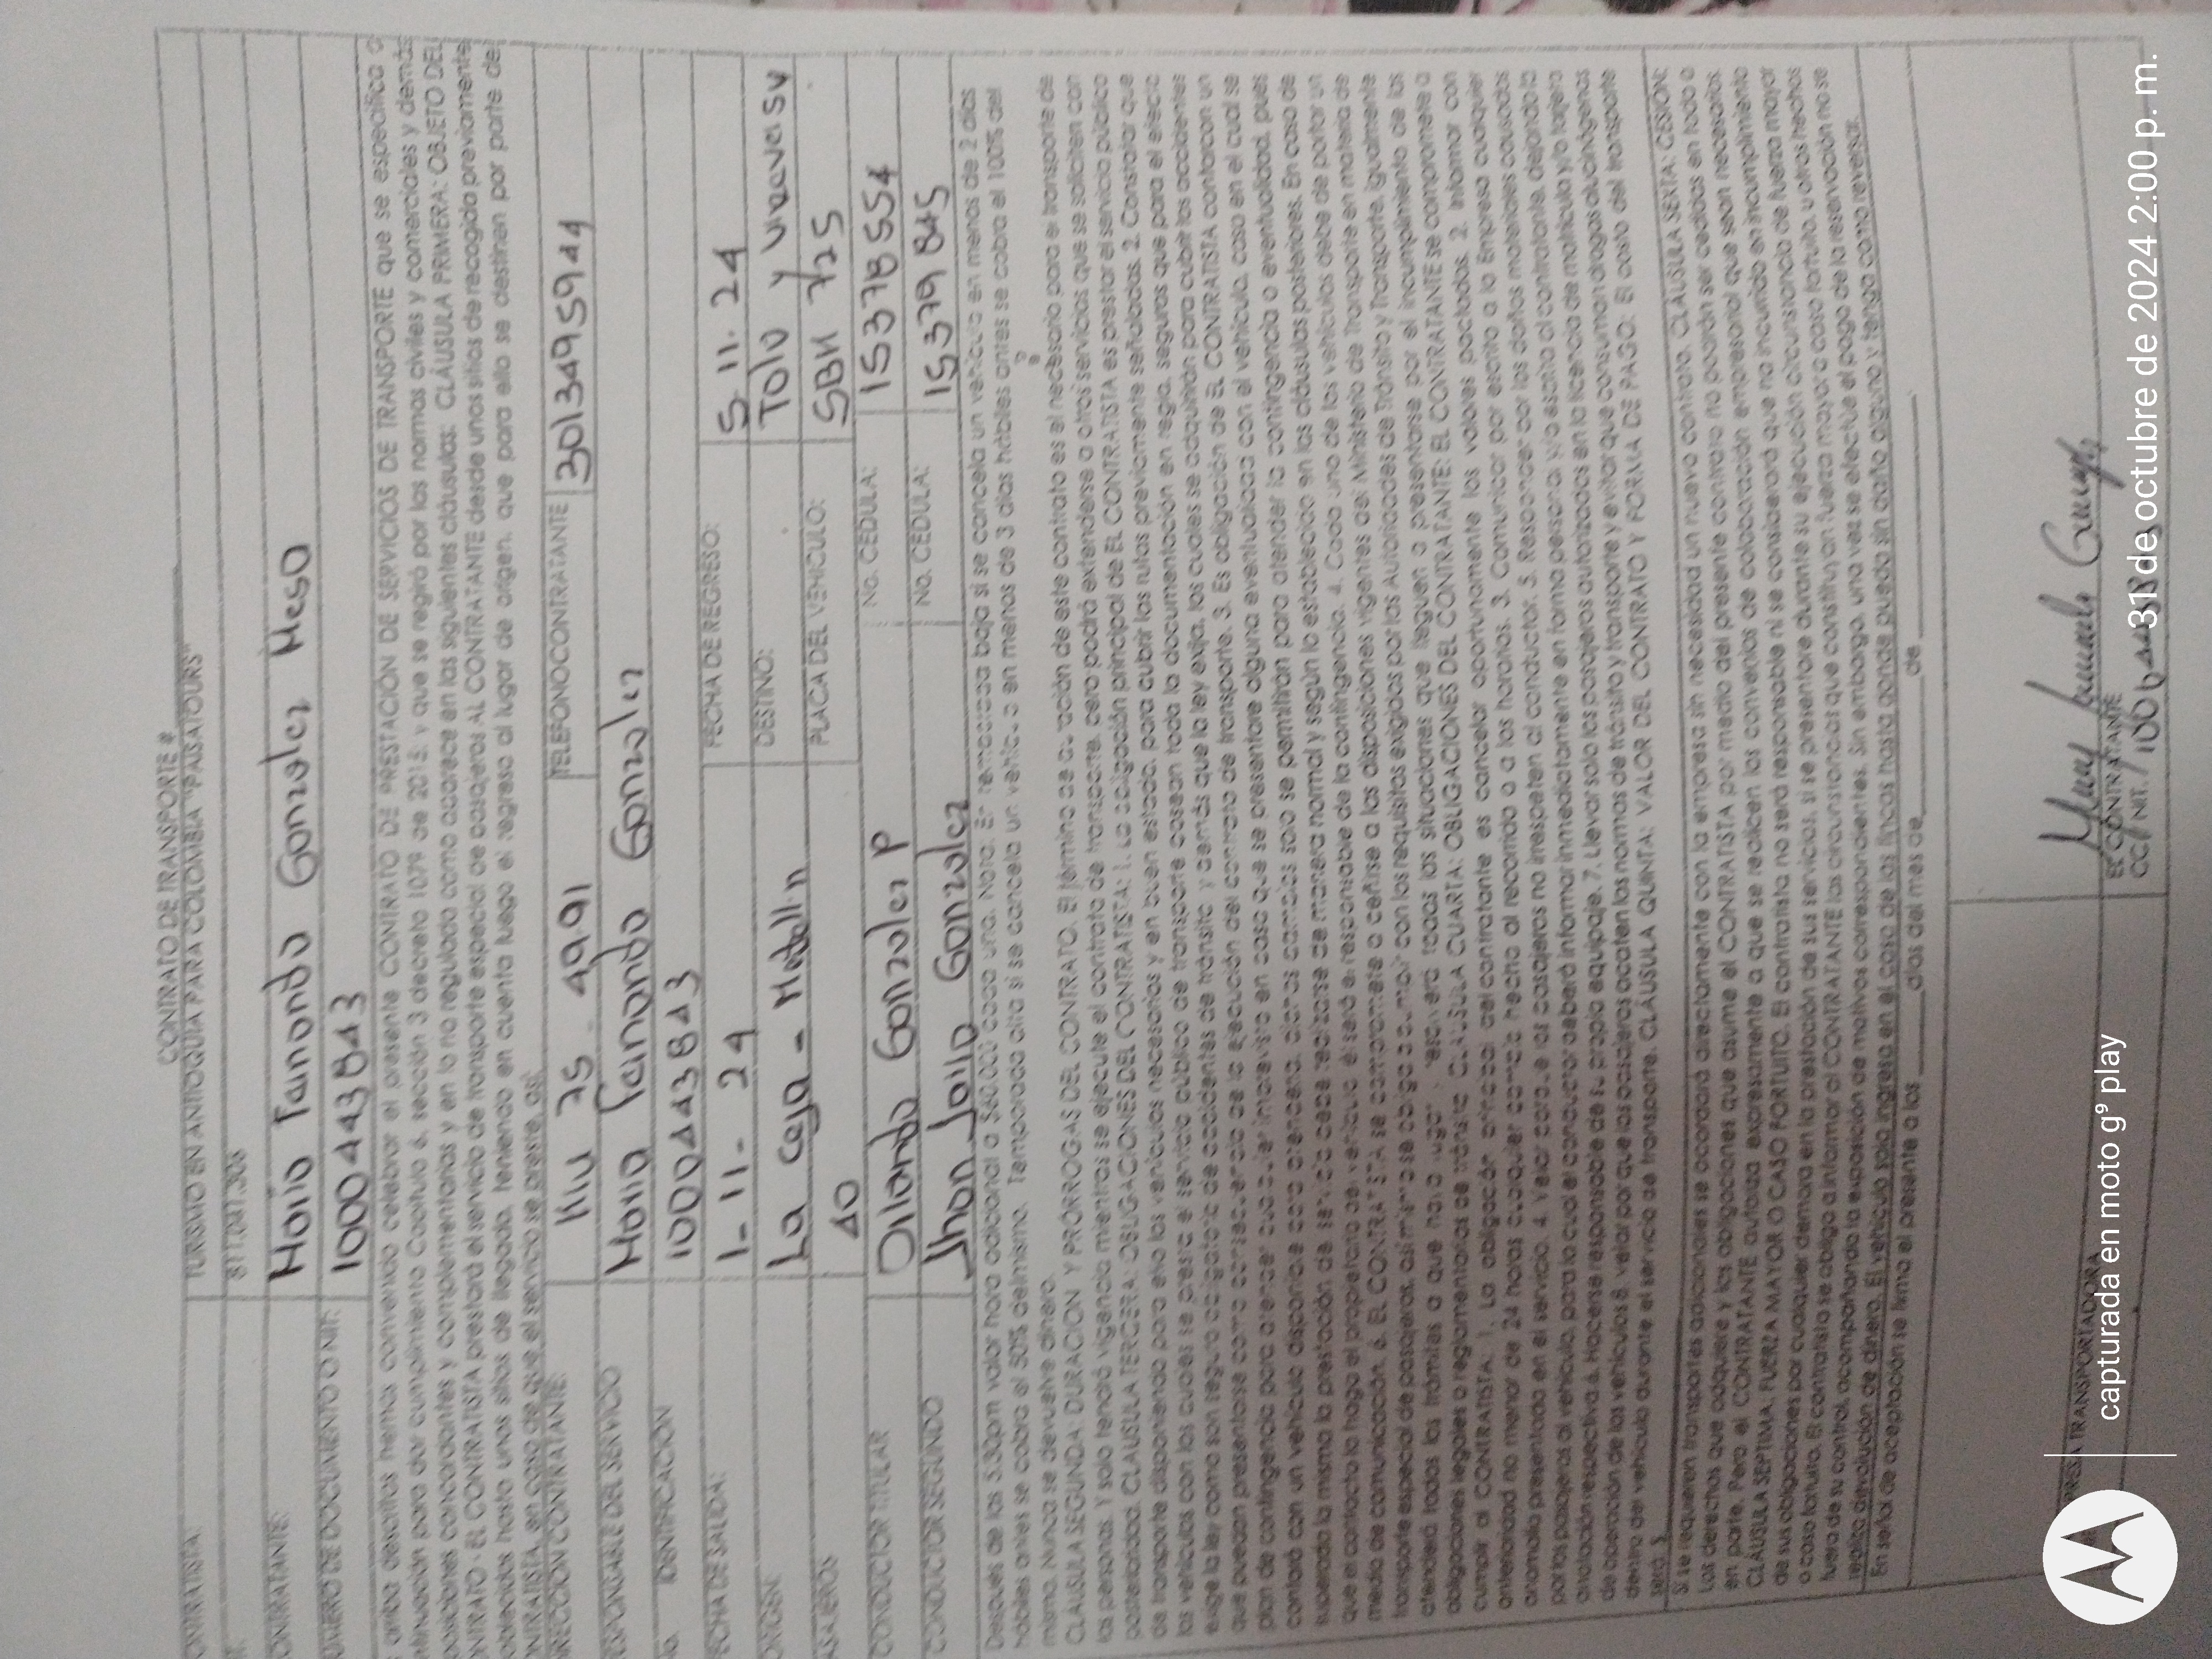 CONTRATO DE TRANSPORTE #
ONTRATISTA: TURISMO EN ANTIOQUIA PARA COLOMBIA "PAISATOURS"
811.041.306
ONTRATANTE: Gonzalez Mesa
UMERO DE DOCUMENTO O NIT: 1000443843
arriba descritos hemos convenido celebrar el presente CONTRATO DE PRESTACIÓN DE SERVICIOS DE TRANSPORTE que se especifica a
ntinuación para dar cumplimiento Capítulo 6, sección 3 decreto 1079 de 2015; y que se regirá por las normas civiles y comerciales y demás
posiciones concordantes y complementarias y en lo no regulado como aparece en las siguientes cláusulas: CLÁUSULA PRIMERA: OBJETO DEL
NTRATO - EL CONTRATISTA prestará el servicio de transporte especial de pasajeros AL CONTRATANTE desde unos sitios de recogida previamente
ablecidos hasta unos sitios de llegada, teniendo en cuenta luego el regreso al lugar de origen, que para ello se destinen por parte del
ONTRATISTA, en caso de que el servicio se preste, así:
IRECCION CONTRATANTE: TELEFONOCONTRATANTE 3013495944
SPONSABLE DEL SERVICIO Gonzalez
No. IDENTIFICACION 1000443843
FECHA DE SALIDA: 1-11-24 FECHA DE REGRESO: 5.11.24
ORIGEN: La Ceja - Medellin DESTINO: Tolu y
ASAJEROS 40 PLACA DEL VEHICULO: 725
CONDUCTOR TITULAR Gonzalez P No. CEDULA: 15378554
CONDUCTOR SEGUNDO Jhon Jairo Gonzalez No. CEDULA: 15379845
Después de las 5:30pm valor hora adicional a $60.000 cada una. Nota: En temporada baja si se cancela un vehículo en menos de 2 días
hábiles antes se cobra el 50% del mismo. Temporada alta si se cancela un vehículo en menos de 3 días hábiles antes se cobra el 100% del
mismo. Nunca se devuelve dinero.
CLÁUSULA SEGUNDA: DURACIÓN Y PRÓRROGAS DEL CONTRATO. El término de duración de este contrato es el necesario para el transporte de
las personas. Y solo tendrá vigencia mientras se ejecute el contrato de transporte, pero podrá extenderse a otros servicios que se soliciten con
posterioridad. CLÁUSULA TERCERA: OBLIGACIONES DEL CONTRATISTA: 1. La obligación principal de EL CONTRATISTA es prestar el servicio público
de transporte disponiendo para ello los vehículos necesarios y en buen estado, para cubrir las rutas previamente señaladas. 2. Constatar que
los vehículos con los cuales se presta el servicio público de transporte posean toda la documentación en regla, seguros que para el efecto
exige la ley como son seguro obligatorio de accidentes de tránsito y demás que la ley exija, los cuales se adquirirán para cubrir los accidentes
que puedan presentarse como consecuencia de la ejecución del contrato de transporte. 3. Es obligación de EL CONTRATISTA contar con un
plan de contingencia para atender cualquier imprevisto en caso que se presentare alguna eventualidad con el vehículo, caso en el cual se
contará con un vehículo disponible para atender la contingencia o eventualidad, pues
superada la misma la prestación de servicio debe realizarse de manera normal y según lo establecido en las cláusulas posteriores. En caso de
que el contacto lo haga el propietario de vehículo, él será el responsable de la contingencia. 4. Cada uno de los vehículos debe de portar un
medio de comunicación. 6. EL CONTRATISTA se compromete a ceñirse a las disposiciones vigentes del Ministerio de Transporte en materia de
transporte especial de pasajeros, así mismo se obliga a cumplir con los requisitos exigidos por las Autoridades de Tránsito y Transporte, igualmente
atenderá todos los trámites a que haya lugar y resolverá todas las situaciones que lleguen a presentarse por el incumplimiento de las
obligaciones legales o reglamentarias de tránsito. CLÁUSULA CUARTA: OBLIGACIONES DEL CONTRATANTE: EL CONTRATANTE se compromete a
cumplir al CONTRATISTA: 1. La obligación principal del contratante es cancelar oportunamente los valores pactados. 2. Informar con
anterioridad no menor de 24 horas cualquier cambio hecho al recorrido o a los horarios. 3. Comunicar por escrito a la Empresa cualquier
anomalía presentada en el servicio. 4. Velar para que los pasajeros no irrespeten al conductor. 5. Responder por los daños materiales causados
por los pasajeros al vehículo, para lo cual el conductor deberá informar inmediatamente en forma personal y/o escrita al contratante, dejando la
anotación respectiva. 6. Hacerse responsable de su propio equipaje. 7. Llevar solo los pasajeros autorizados en la licencia de matrícula y/o tarjeta
de operación de los vehículos 8. velar por que los pasajeros acaten las normas de tránsito y transporte y evitar que consuman drogas alucinógenas
dentro del vehículo durante el servicio de transporte. CLÁUSULA QUINTA: VALOR DEL CONTRATO Y FORMA DE PAGO: El costo del transporte
será $
Si se requieren transportes adicionales se acordará directamente con la empresa sin necesidad un nuevo contrato. CLÁUSULA SEXTA: CESIÓN:
Los derechos que adquiere y las obligaciones que asume el CONTRATISTA por medio del presente contrato no podrán ser cedidas en todo o
en parte. Pero el CONTRATANTE autoriza expresamente a que se realicen los convenios de colaboración empresarial que sean necesarios.
CLÁUSULA SEPTIMA. FUERZA MAYOR O CASO FORTUITO. El contratista no será responsable ni se considerará que ha incurrido en incumplimiento
de sus obligaciones por cualquier demora en la prestación de sus servicios, si se presentare durante su ejecución circunstancia de fuerza mayor
o caso fortuito. El contratista se obliga a informar al CONTRATANTE las circunstancias que constituyan fuerza mayor o caso fortuito, u otros hechos
fuera de su control, acompañando la exposición de motivos correspondientes. Sin embargo, una vez se efectúe el pago de la reservación no se
realiza devolución de dinero. El vehículo solo ingresa en el caso de las fincas hasta donde pueda sin daño alguno y tenga como reversar.
En señal de aceptación se firma el presente a los ______ días del mes de ______ de ______.
PRESA TRANSPORTADORA EL CONTRATANTE
CC/ NIT.
capturada en moto g⁹ play 31 de octubre de 2024 2:00 p. m.